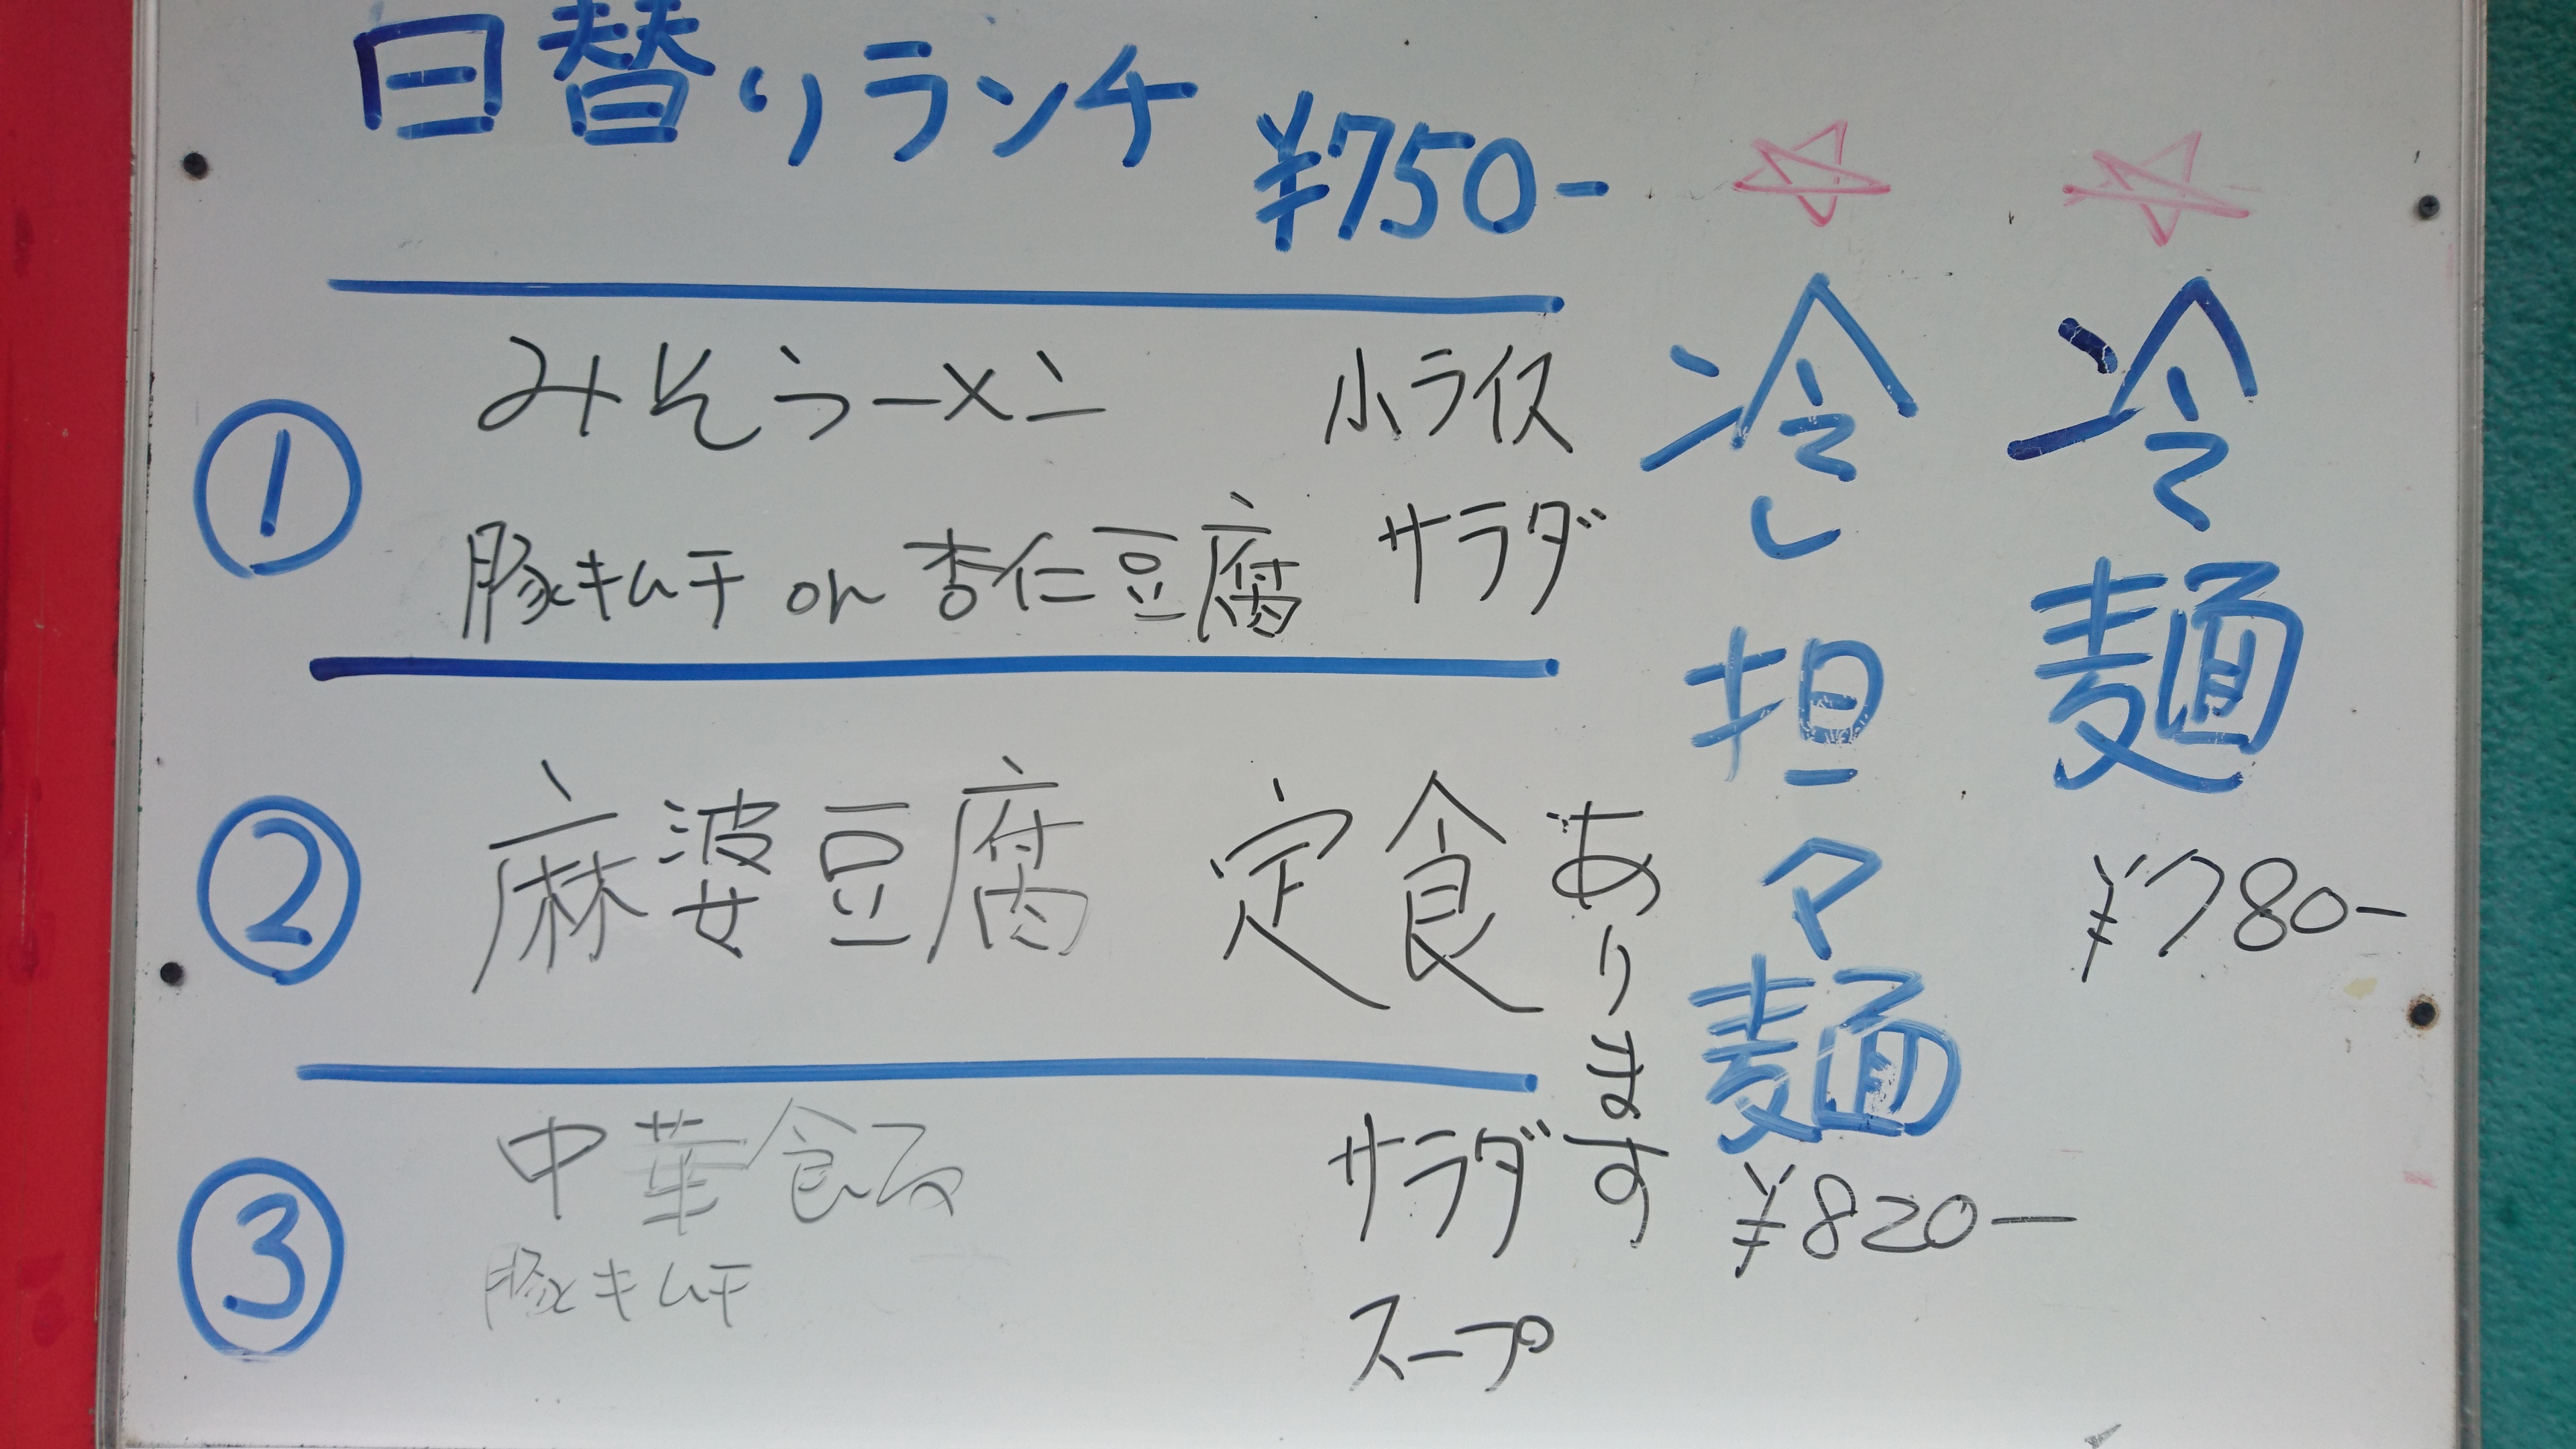 日替りランチ
¥750-
① みそラーメン 小ライス
豚キムチ or 杏仁豆腐 サラダ
② 麻婆豆腐 定食
③ 中華飯 サラダ
豚キムチ スープ
☆冷麺
¥780-
☆冷し担々麺
¥820-
あります